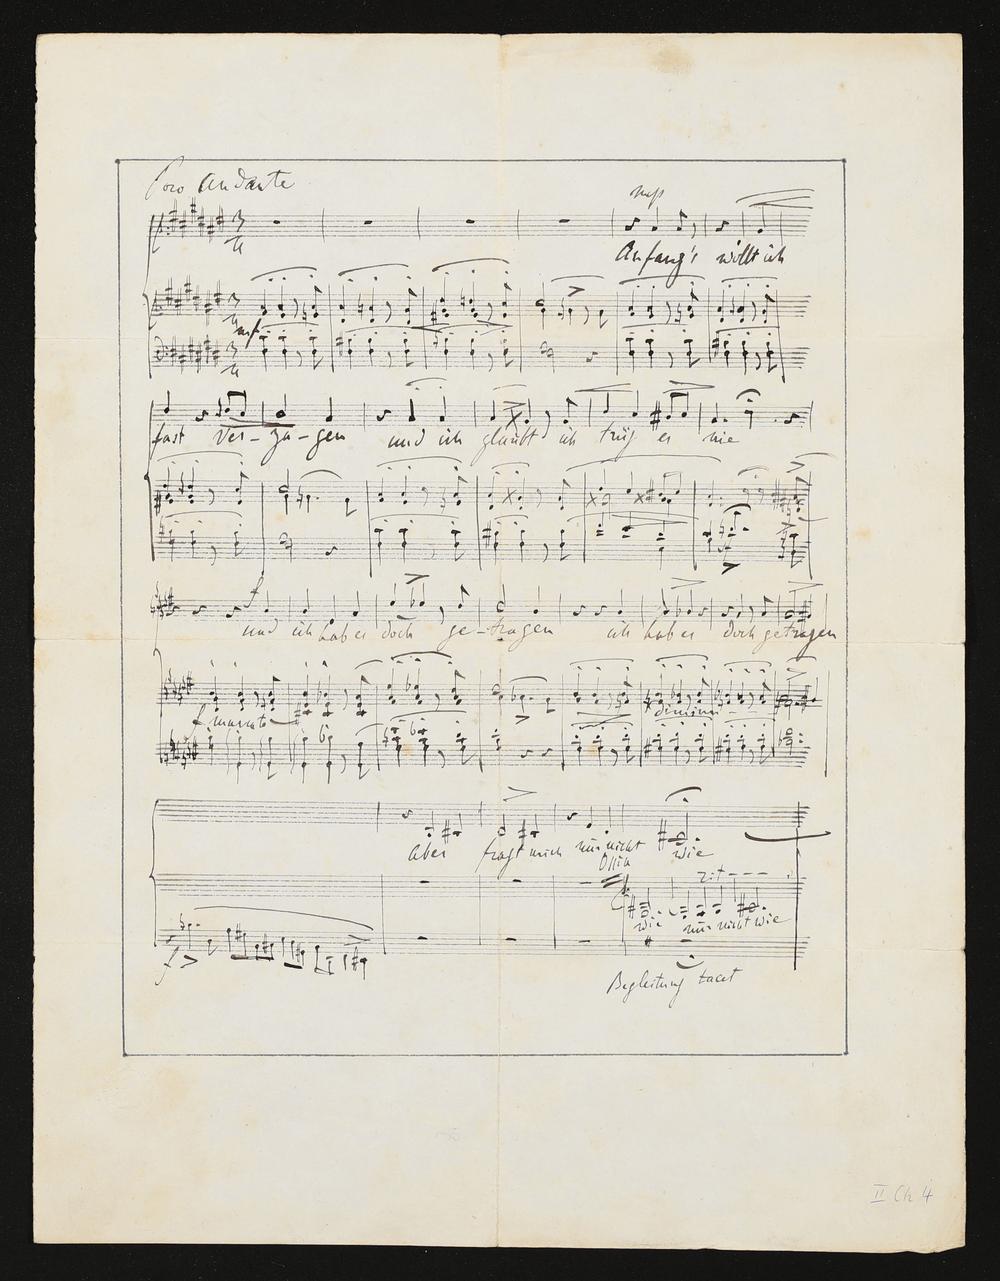 Poco Andante
mf
Anfang's wollt ich
mf
fast ver-za-gen und ich glaubt ich trüg es nie
f
und ich hab es doch ge-tragen ich hab es doch getragen
f marcato dimin
Aber fragt mich nur nicht wie
Ossia
rit - - -
wie nur nicht wie
f
Begleitung tacet
II Ch 4